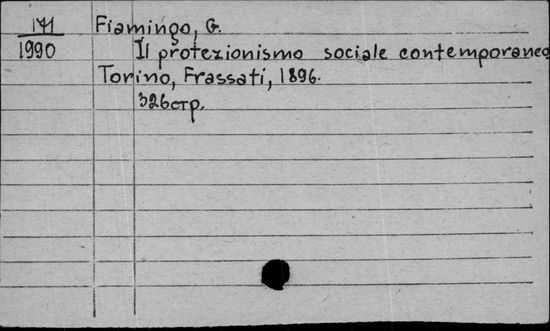 171
1990
Fiamingo, G.
Il protezionismo sociale contemporaneo
Torino, Frassati, 1896.
326стр.